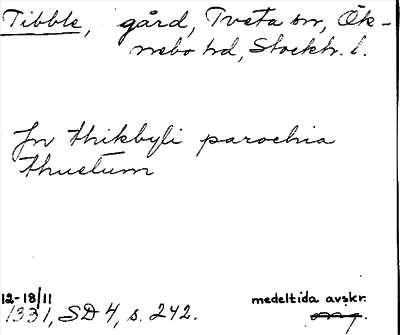 Tibble, gård, Tveta sn, Ök-
nebo hd, Stockh. l.
In thikbyli parochia
thuetum
12-18/11
1331, SD 4, s. 242.
medeltida avskr.
orig.